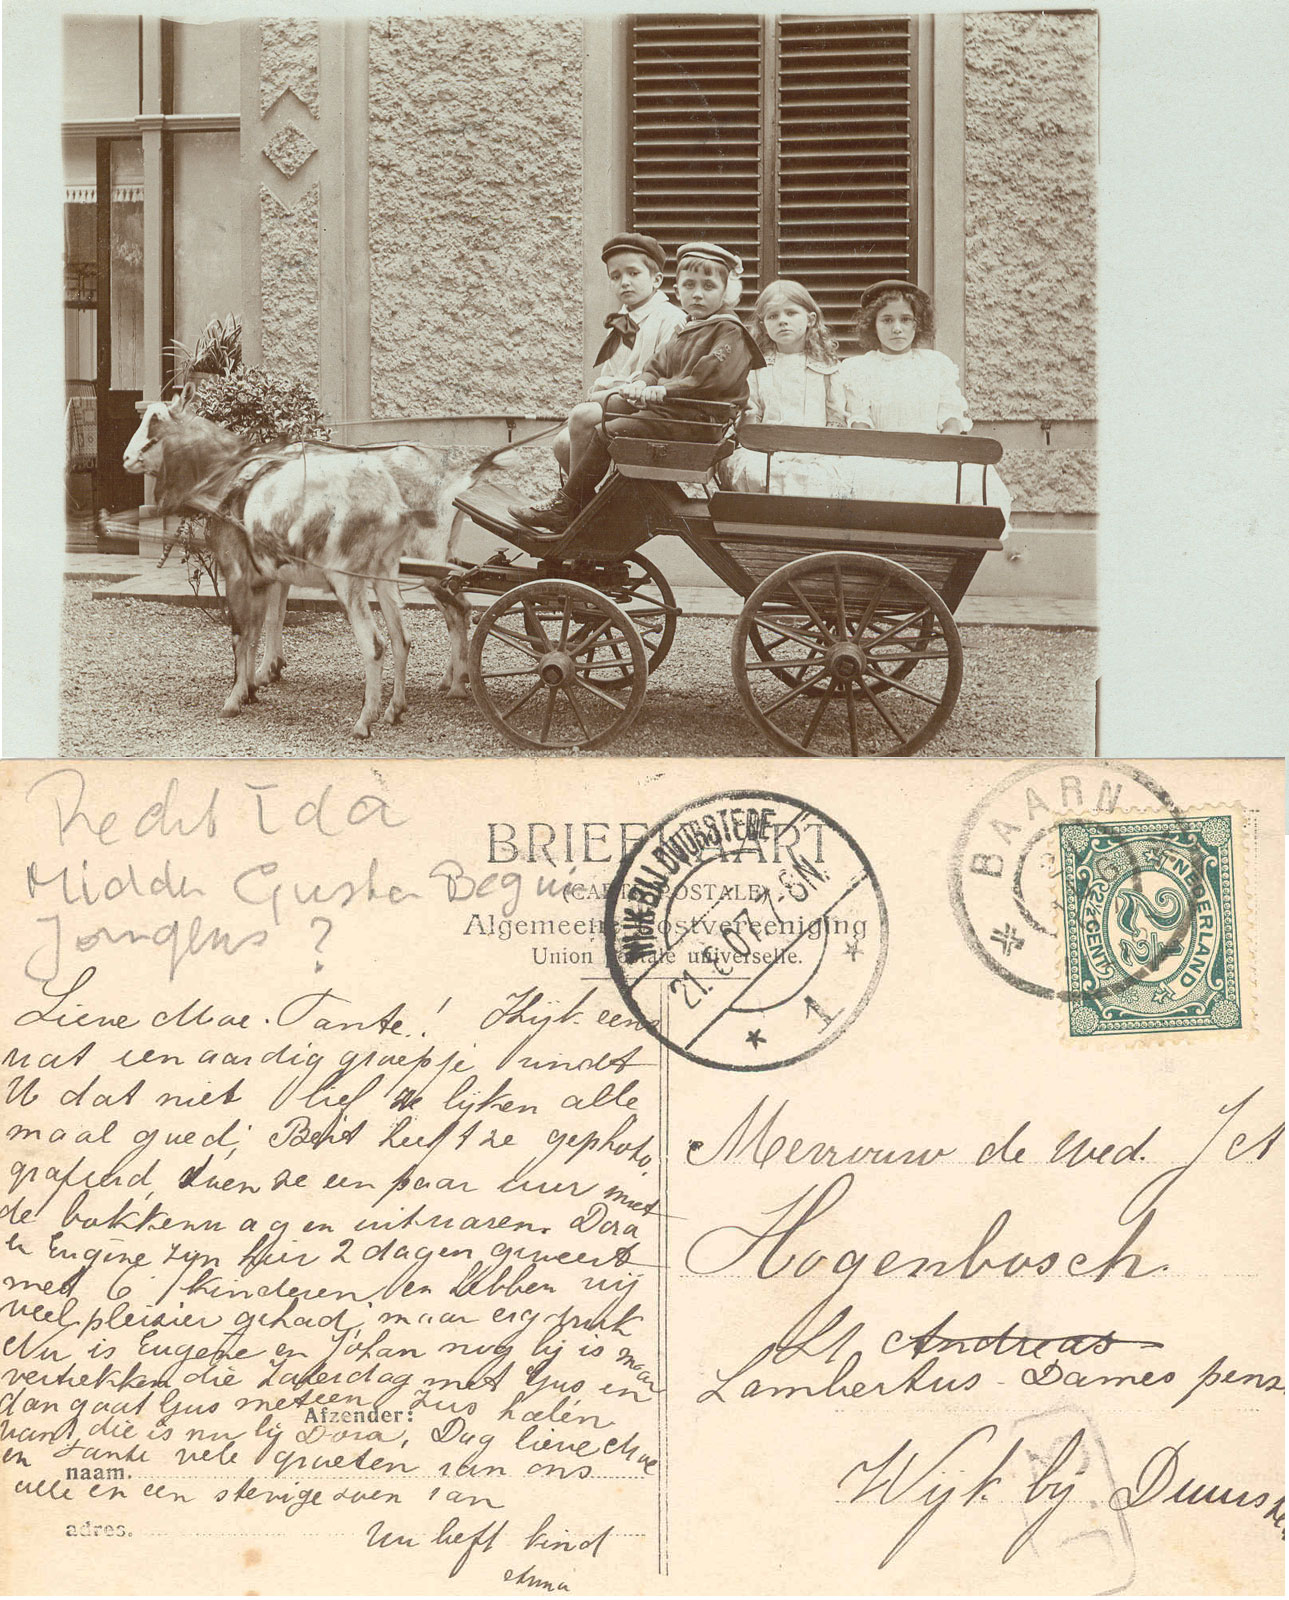 Recht Ida
Midden Guster Begui
Jongens ?
BRIEFKAART
(CARTE POSTALE)
Algemeene Postvereeniging
Union Postale universelle.
WIJK BIJ DUURSTEDE
21. 6 07 7-8N.
1
BAARN
NEDERLAND
2½
2½ CENT
Lieve Moe. Tante! Kijk eens
wat een aardig groepje vindt
U dat niet lief ze lijken alle
maal goed, Bert heeft ze gephoto,
grafeerd, toen ze een paar uur met
de bokkenwagen uitwaren. Dora
en Eugène zijn hier 2 dagen geweest
met 6 kinderen en hebben wij
veel pleizier gehad, maar erg druk
Nu is Eugène en Johan nog bij is maar
vertrekken die Zaterdag met Gus en
dan gaat Gus meteen Zus halen
want die is nu bij Dora, Dag lieve Moe
en Tante vele groeten van ons
alle en een stevige zoen van
Uw lieft kind
Anna
Afzender:
naam.
adres.
Mevrouw de Wed. J A
Hogenbosch.
St Andreas
Lambertus-Dames pens
Wijk bij Duurste